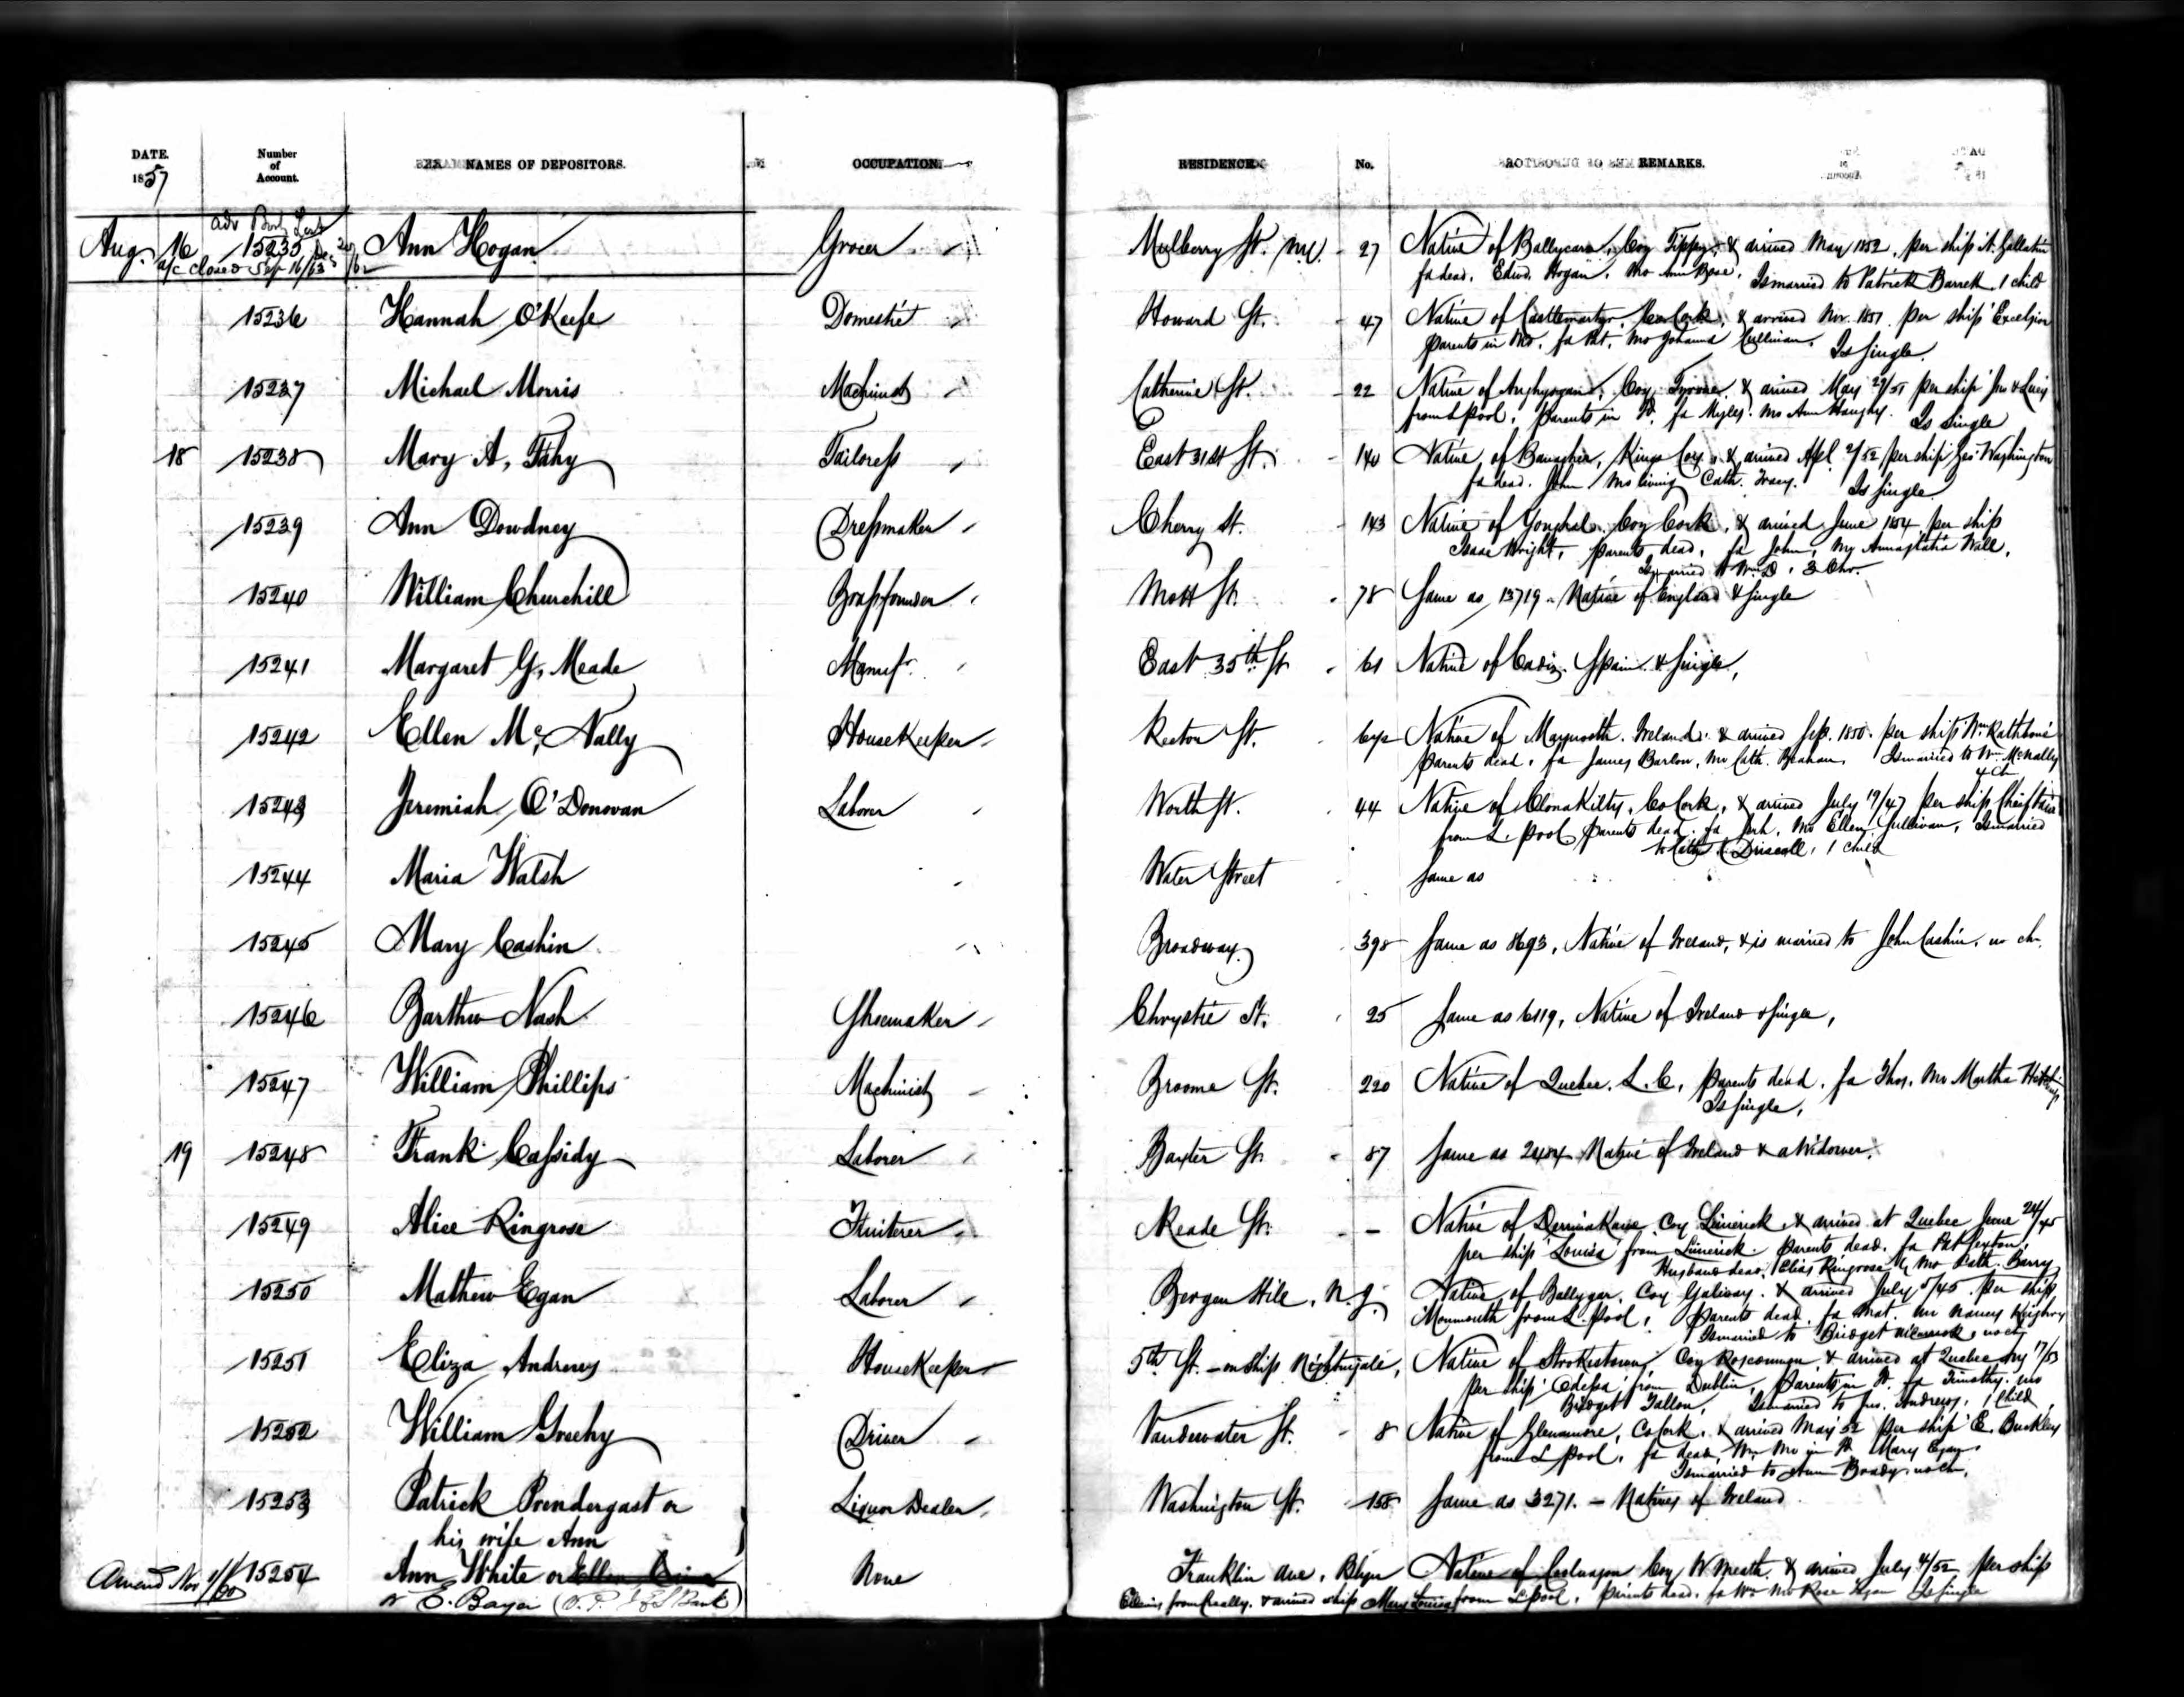 DATE. 1857 Number of Account. NAMES OF DEPOSITORS. OCCUPATION. RESIDENCE No. REMARKS.
Adv
Aug. 16 15235 Ann Hogan Grocer Mulberry St. 27 Native of Coy Tippy, & arrived May 1852, per ship A. Gallatin
a/c closed Sep 16/63 fa dead, Edwd. Hogan, Mo Ann Is married to Patrick Barrett, 1 child
15236 Hannah O'Keefe Domestic Howard St. 47 Native of Castlemartyr, Co Cork, & arrived Nov. 1851 per ship Excelsior
parents in fa Pat, Mo Johanna Cullinan, Is single.
15237 Michael Morris Machinist Catherine St. 22 Native of Coy Tyrone & arrived May 29/51 per ship Jno & Lucy
from L'pool, parents in fa Myles, Mo Ann Haughy. Is single
18 15238 Mary A. Fahy Tailoress East 31st St. 140 Native of Banagher, Kings Coy, & arrived Apl. 2/52 per ship Geo Washington
fa dead, John, Mo living Cath. Tracy. Is single
15239 Ann Dowdney Dressmaker Cherry St. 143 Native of Youghal, Coy Cork, & arrived June 1854 per ship
Isaac Wright, parents dead, fa John, My Annastatia Wall,
Is married to Wm. D, 3 Chr.
15240 William Churchill Brassfounder Mott St. 78 Same as 13719 - Native of England & Single
15241 Margaret G. Meade Manufr. East 35th St 61 Native of Cadiz, Spain & Single,
15242 Ellen McNally HouseKeeper St. Native of Maynooth, Ireland & arrived Sep. 1850 per ship Wm Rathbone
parents dead, fa James Barlow, Mo Cath. Is married to Wm McNally
4 Ch
15243 Jeremiah O'Donovan Laborer Worth St. 44 Native of ClonaKilty, Co Cork, & arrived July 19/47 per ship Chieftain
from L. pool, parents dead, fa Jerh, Mo Ellen Sullivan, Is married
to Cath Driscoll, 1 child
15244 Maria Walsh Water Street Same as
15245 Mary Cashin Broadway 398 Same as 8693, Native of Ireland, & is married to John Cashin, no ch.
15246 Barthw Nash Shoemaker Chrystie St. 25 Same as 6119, Native of Ireland & single,
15247 William Phillips Machinist Broome St. 220 Native of Quebec, L. C, parents dead, fa Thos, Mo Martha
Is single,
19 15248 Frank Cassidy Laborer Baxter St. 87 Same as 2484 Native of Ireland & a Widower.
15249 Alice Ringrose Fruiterer Reade St. - Native of Coy Limerick & arrived at Quebec June 24/45
per ship Louisa from Limerick, parents dead, fa Pat Sexton,
Husband dead, Elias Ringrose, Mo Cath. Barry
15250 Mathew Egan Laborer Bergen Hill, N.J. Native of Ballygar, Coy Galway & arrived July 5/45 per ship
Monmouth from L. pool, parents dead, fa Mat. Mo Nancy
Is married to Bridget no ch
15251 Eliza Andrews HouseKeeper 5th St. - on ship Nightingale, Native of Strokestown, Coy Roscommon, & arrived at Quebec 17/53
per ship Odessa, from Dublin, Parents in fa Timothy, mo
Bridget Fallon, Is married to Jno. Andrews, 1 child,
15252 William Greehy Driver Vandewater St. 8 Native of Glenamore, Co Cork, & arrived May 52 per ship E. Buckley
from L pool, fa dead, Wm Mo in Mary Egan
Is married to Ann Brady, no ch.
15253 Patrick Prendergast or Liquor Dealer Washington St. 158 Same as 3271. - Natives of Ireland
his wife Ann
Amend Nov 15254 Ann White or Ellen None Franklin ave, Bklyn Native of Coy W Meath & arrived July 4/52 per ship
or E. Bayer from & arrived ship Mary Louisa from L'pool, Parents dead, fa Wm Mo Rose Is single